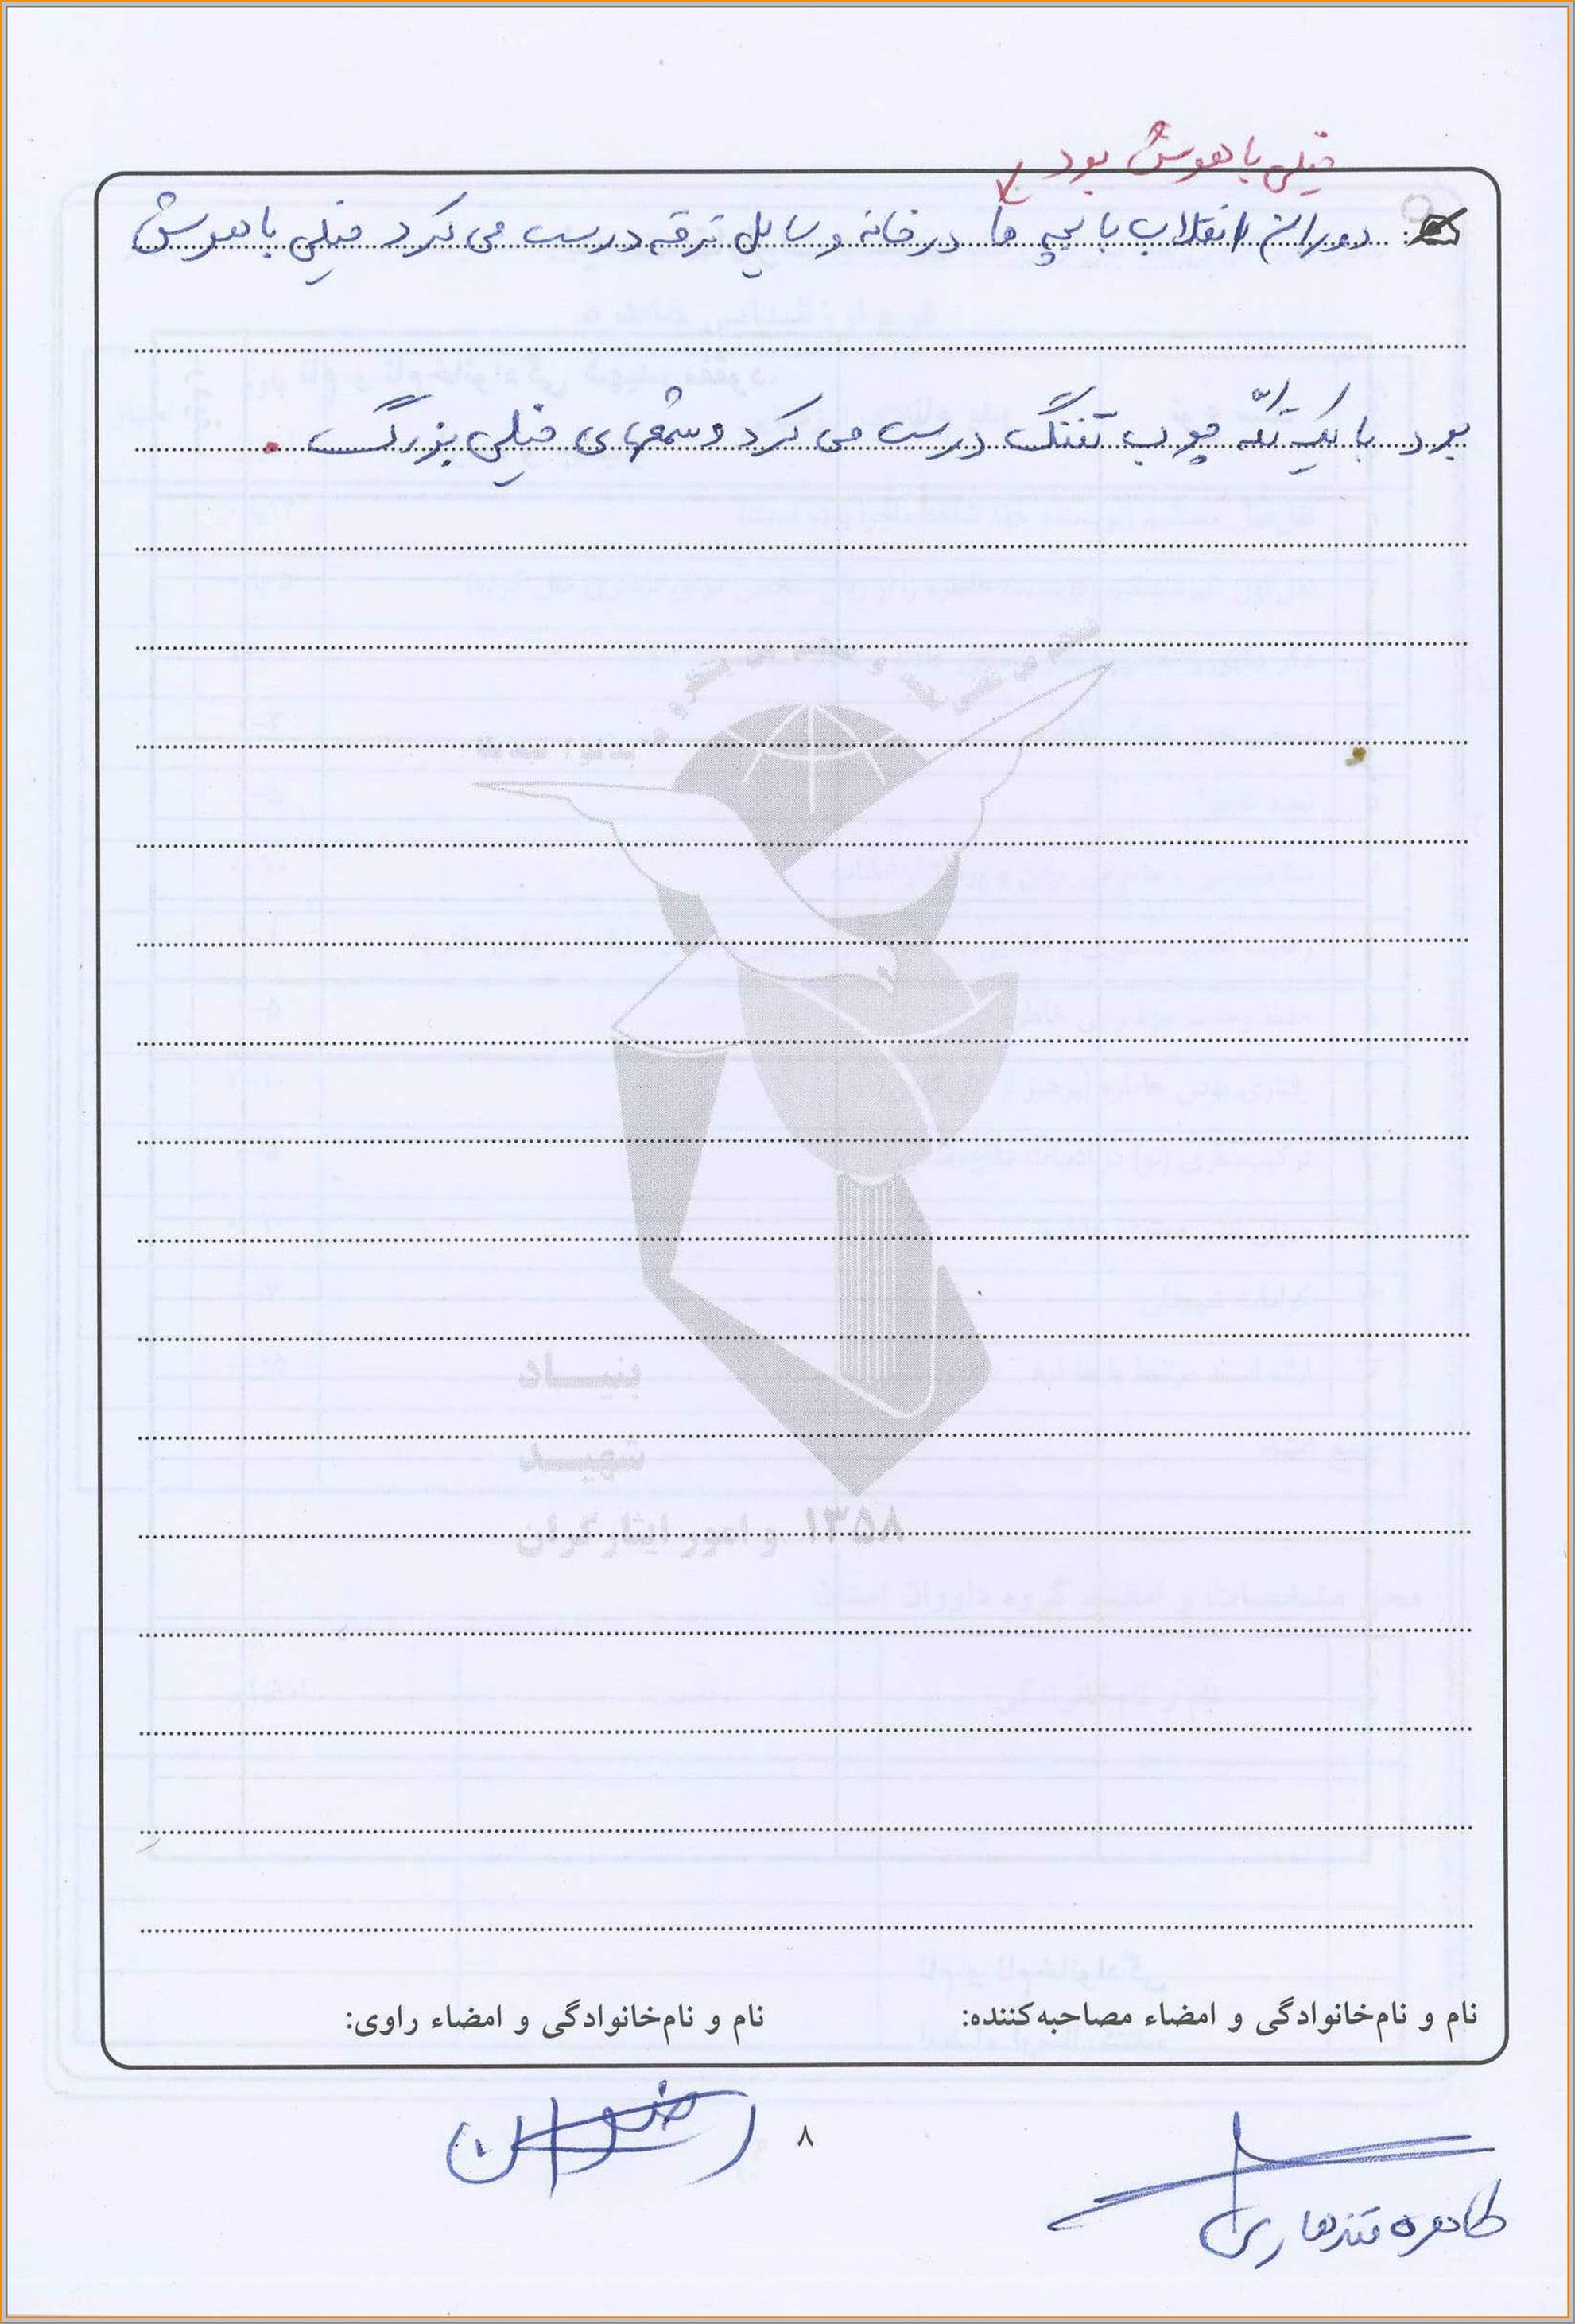 خیلی باهوش بود
دوران انقلاب با بچه ها در خانه وسایل ترقه درست می کرد خیلی باهوش
بود با یک تکّه چوب تفنگ درست می کرد و شمعهای خیلی بزرگ .
بنیاد
شهید
۱۳۵۸ و امور ایثارگران
نام و نام‌خانوادگی و امضاء مصاحبه‌کننده:
نام و نام‌خانوادگی و امضاء راوی:
رضوان
۸
طاهره قندهاری